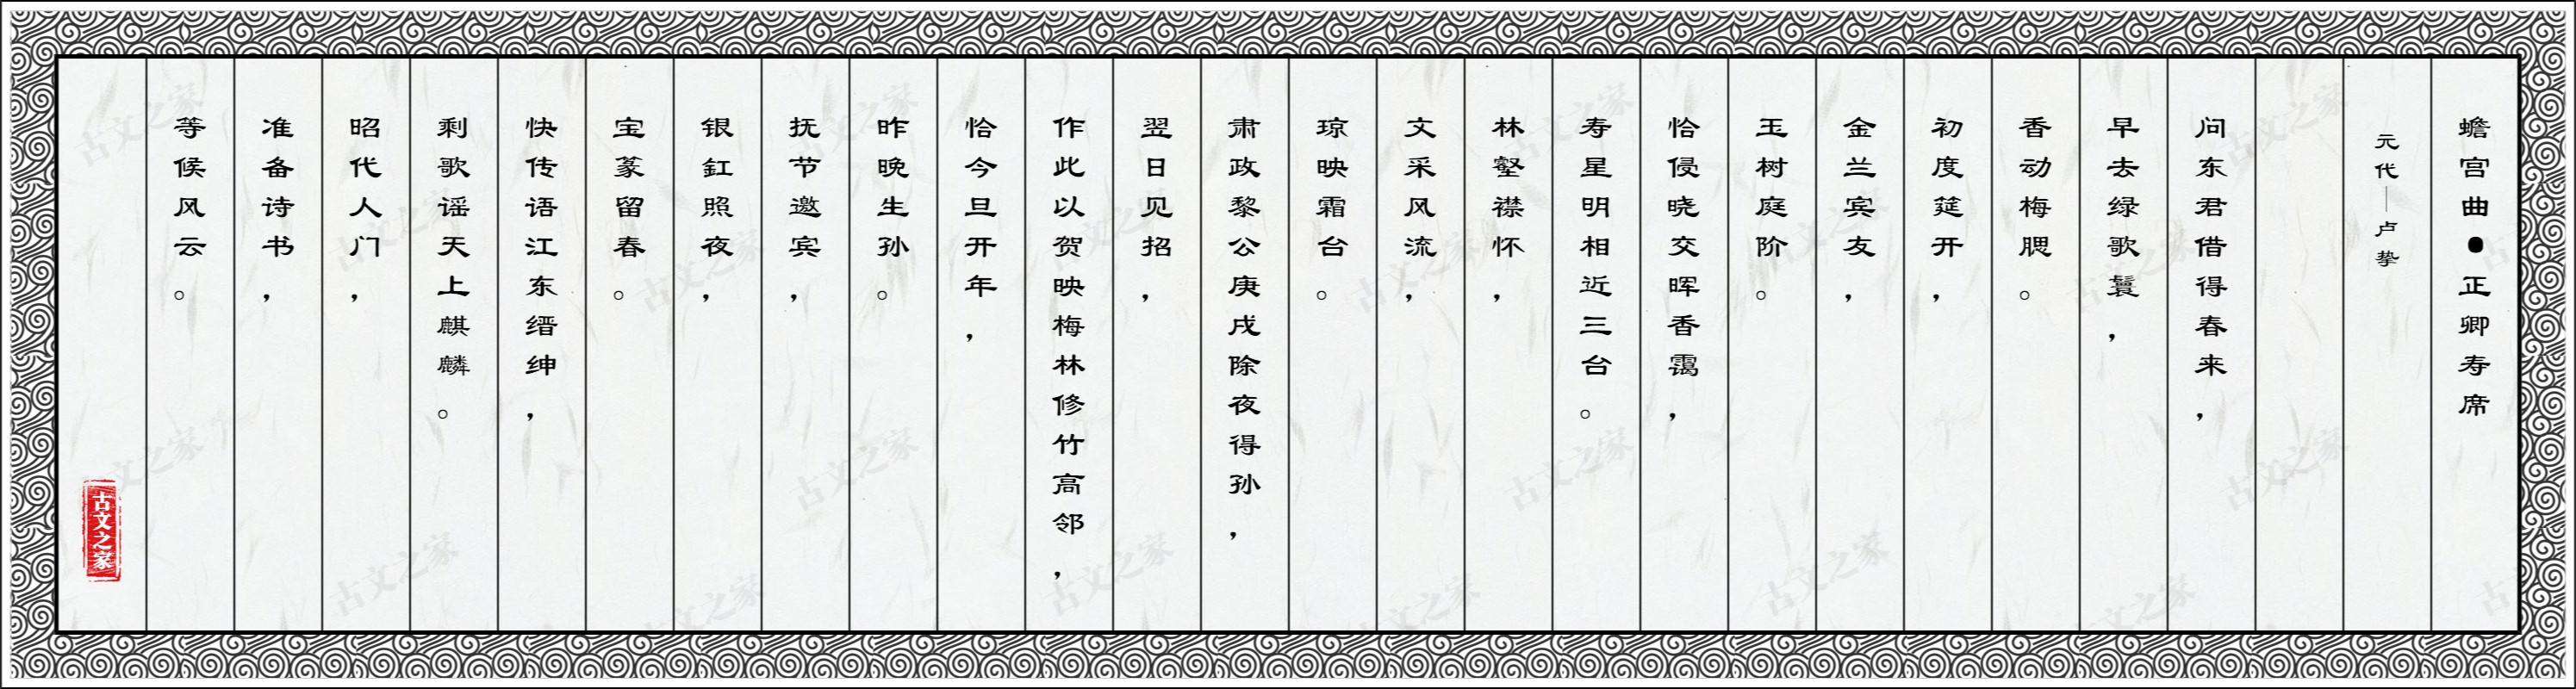 蟾宫曲●正卿寿席
元代—卢挚
问东君借得春来，
早去绿歌鬟，
香动梅腮。
初度筵开，
金兰宾友，
玉树庭阶。
恰侵晓交晖香霭，
寿星明相近三台。
林壑襟怀，
文采风流，
琼映霜台。
肃政黎公庚戌除夜得孙，
翌日见招，
作此以贺映梅林修竹高邻，
恰今旦开年，
昨晚生孙。
抚节邀宾，
银釭照夜，
宝篆留春。
快传语江东缙绅，
剩歌谣天上麒麟。
昭代人门，
准备诗书，
等候风云。
古文之家